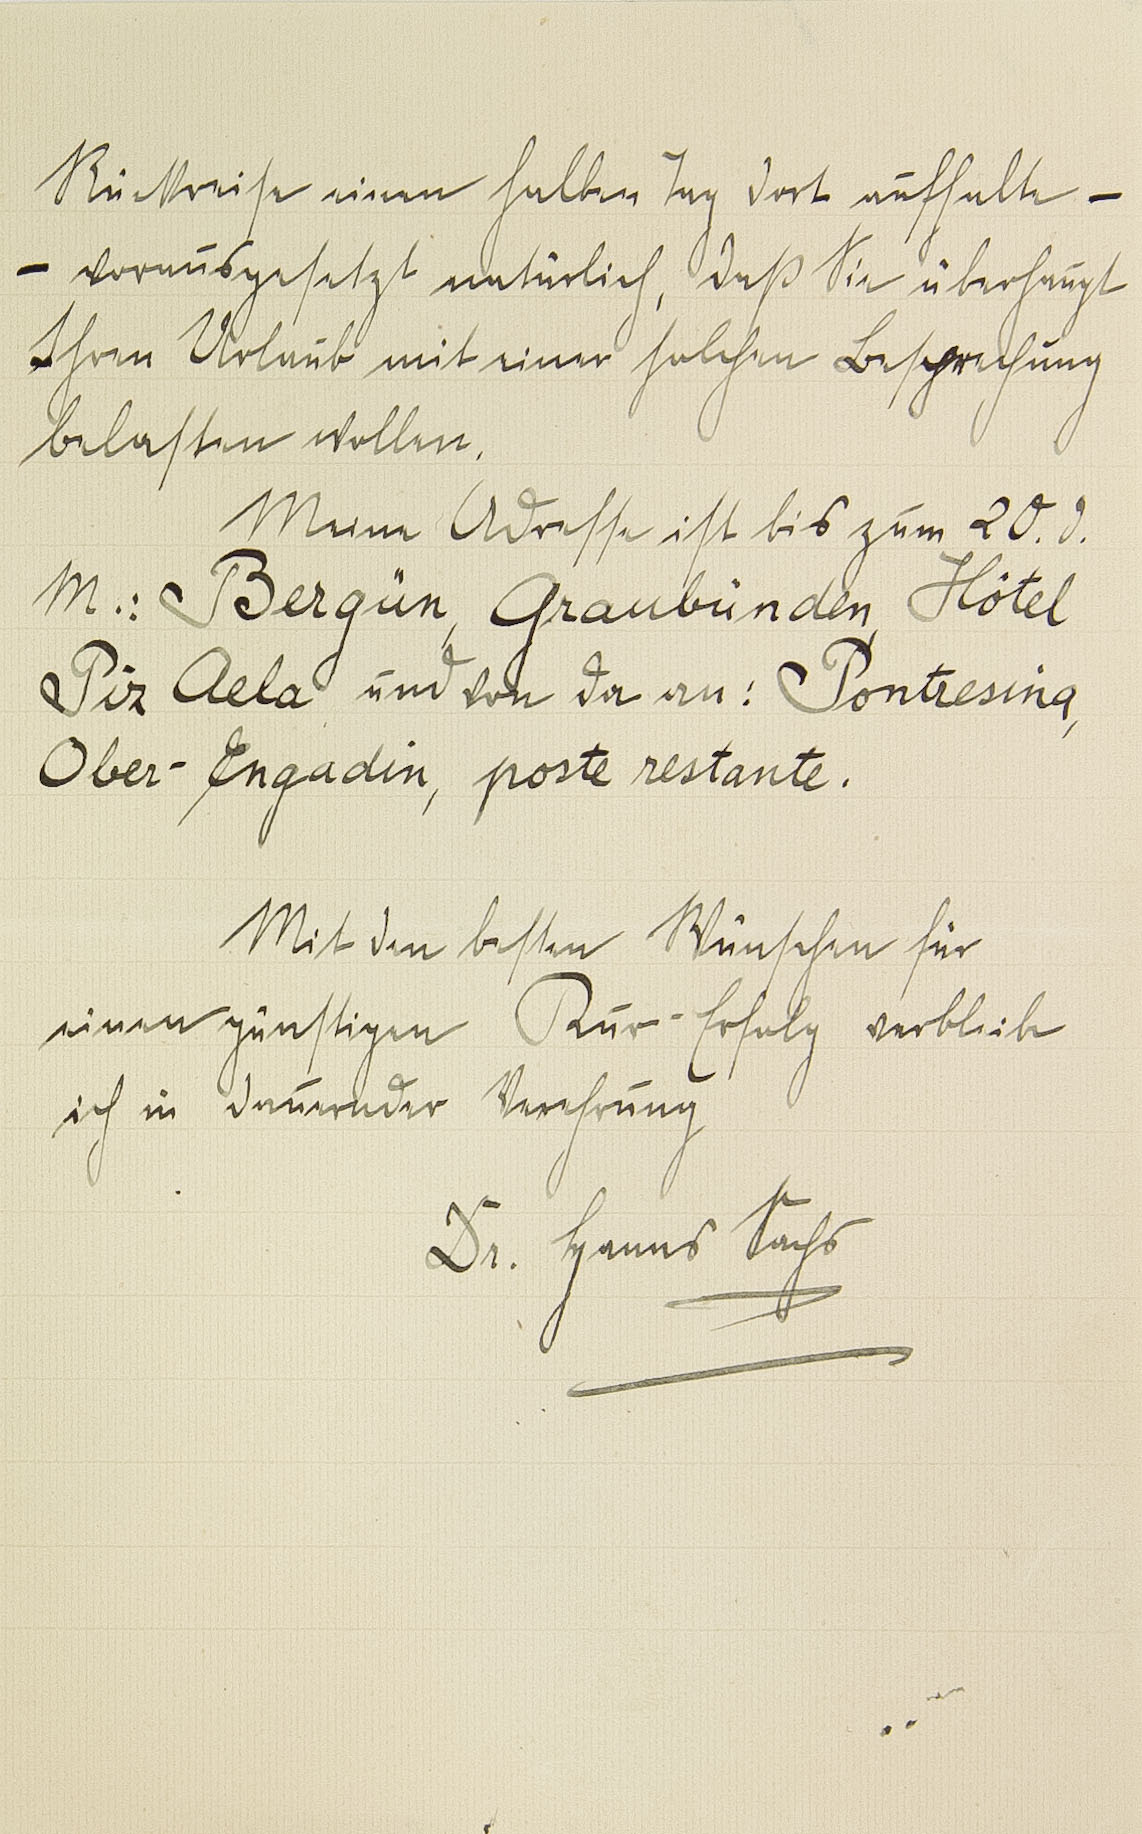 Rückreise einen halben Tag dort aufhalte –
– vorausgesetzt natürlich, daß Sie überhaupt
Ihren Urlaub mit einer solchen Besprechung
belasten wollen.
Meine Adresse ist bis zum 20. d.
M.: Bergün, Graubünden, Hôtel
Piz Aela und von da an: Pontresina,
Ober-Engadin, poste restante.
Mit den besten Wünschen für
einen günstigen Kur-Erfolg verbleibe
ich in dauernder Verehrung
Dr. Hanns Sachs